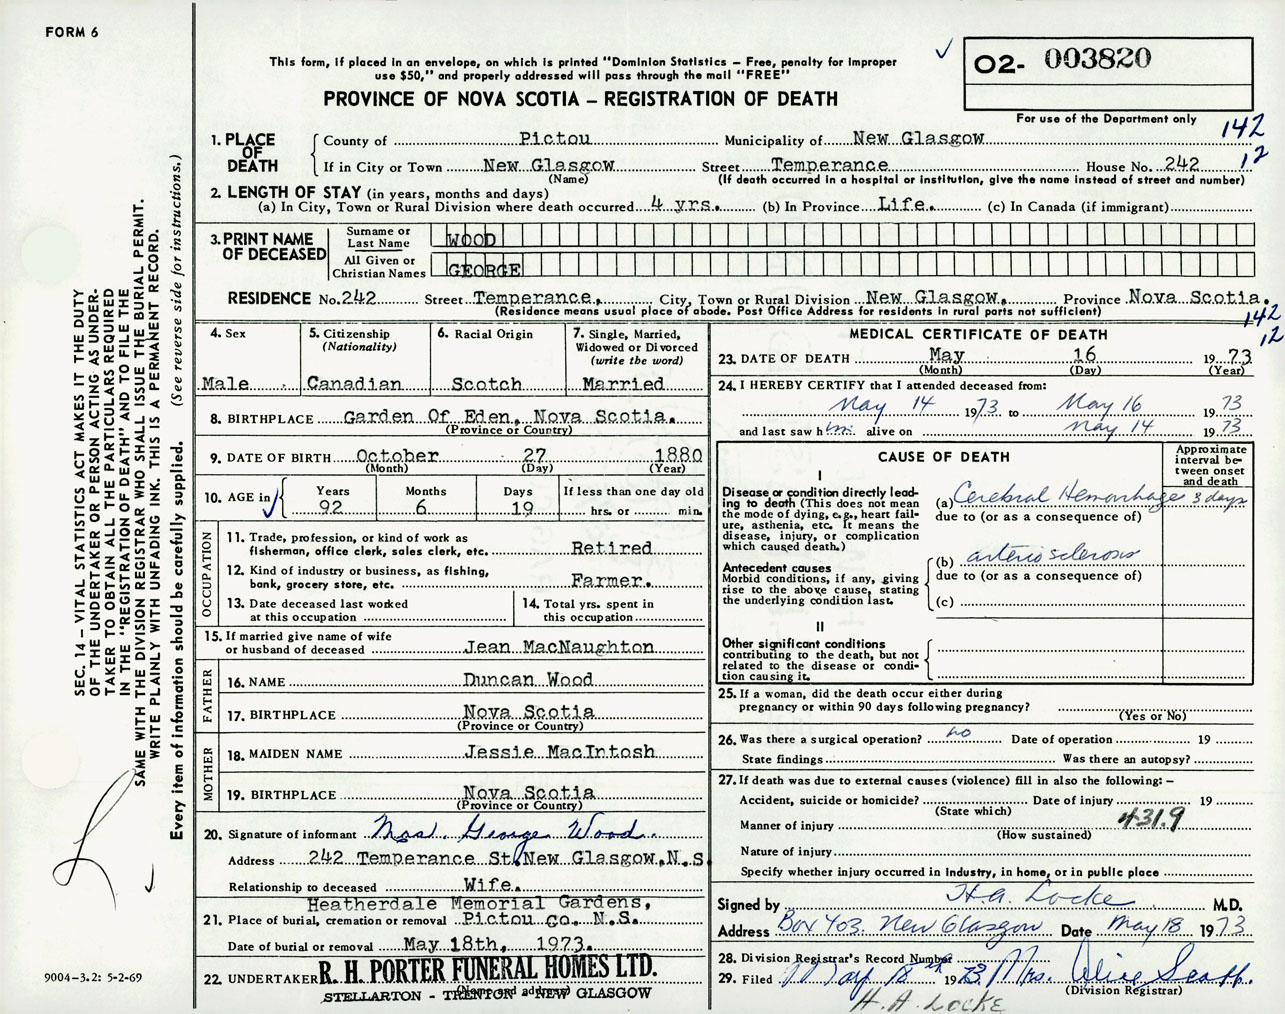 FORM 6
This form, if placed in an envelope, on which is printed "Dominion Statistics – Free, penalty for improper
use $50," and properly addressed will pass through the mail "FREE"
PROVINCE OF NOVA SCOTIA – REGISTRATION OF DEATH
02- 003820
For use of the Department only
142
12
1. PLACE OF DEATH
County of Pictou Municipality of New Glasgow
If in City or Town New Glasgow Street Temperance House No. 242
(Name) (If death occurred in a hospital or institution, give the name instead of street and number)
2. LENGTH OF STAY (in years, months and days)
(a) In City, Town or Rural Division where death occurred 4 yrs. (b) In Province Life. (c) In Canada (if immigrant)
3. PRINT NAME OF DECEASED
Surname or Last Name WOOD
All Given or Christian Names GEORGE
RESIDENCE No. 242 Street Temperance, City, Town or Rural Division New Glasgow, Province Nova Scotia.
(Residence means usual place of abode. Post Office Address for residents in rural parts not sufficient)
142
12
4. Sex Male
5. Citizenship (Nationality) Canadian
6. Racial Origin Scotch
7. Single, Married, Widowed or Divorced (write the word) Married
8. BIRTHPLACE Garden Of Eden, Nova Scotia.
(Province or Country)
9. DATE OF BIRTH October 27 1880
(Month) (Day) (Year)
10. AGE in Years 92 Months 6 Days 19 If less than one day old hrs. or min.
OCCUPATION
11. Trade, profession, or kind of work as
fisherman, office clerk, sales clerk, etc. Retired
12. Kind of industry or business, as fishing,
bank, grocery store, etc. Farmer.
13. Date deceased last worked
at this occupation
14. Total yrs. spent in
this occupation
15. If married give name of wife
or husband of deceased Jean MacNaughton
FATHER
16. NAME Duncan Wood
17. BIRTHPLACE Nova Scotia
(Province or Country)
MOTHER
18. MAIDEN NAME Jessie MacIntosh
19. BIRTHPLACE Nova Scotia
(Province or Country)
20. Signature of informant Mrs. George Wood.
Address 242 Temperance St, New Glasgow, N.S
Relationship to deceased Wife.
Heatherdale Memorial Gardens,
21. Place of burial, cremation or removal Pictou Co. N.S.
Date of burial or removal May 18th, 1973.
22. UNDERTAKER R. H. PORTER FUNERAL HOMES LTD.
(Name and address)
STELLARTON - TRENTON - NEW GLASGOW
MEDICAL CERTIFICATE OF DEATH
23. DATE OF DEATH May 16 1973
(Month) (Day) (Year)
24. I HEREBY CERTIFY that I attended deceased from:
May 14 1973 to May 16 1973
and last saw him alive on May 14 1973
CAUSE OF DEATH
Approximate interval between onset and death
I
Disease or condition directly lead-
ing to death (This does not mean
the mode of dying, e.g., heart fail-
ure, asthenia, etc. It means the
disease, injury, or complication
which caused death.)
(a) Cerebral Hemorrhage 3 days
due to (or as a consequence of)
Antecedent causes
Morbid conditions, if any, giving
rise to the above cause, stating
the underlying condition last.
(b) arteriosclerosis
due to (or as a consequence of)
(c)
II
Other significant conditions
contributing to the death, but not
related to the disease or condi-
tion causing it.
25. If a woman, did the death occur either during
pregnancy or within 90 days following pregnancy?
(Yes or No)
26. Was there a surgical operation? no Date of operation 19
State findings Was there an autopsy?
27. If death was due to external causes (violence) fill in also the following: –
Accident, suicide or homicide? Date of injury 19
(State which)
Manner of injury 431.9
(How sustained)
Nature of injury
Specify whether injury occurred in industry, in home, or in public place
Signed by H.A. Locke M.D.
Address Box 403. New Glasgow Date May 18 1973
28. Division Registrar's Record Number
29. Filed May 18th 1973 Mrs. Alice
(Division Registrar)
H. A. LOCKE
SEC. 14 – VITAL STATISTICS ACT MAKES IT THE DUTY
OF THE UNDERTAKER OR PERSON ACTING AS UNDER-
TAKER TO OBTAIN ALL THE PARTICULARS REQUIRED
IN THE "REGISTRATION OF DEATH" AND TO FILE THE
SAME WITH THE DIVISION REGISTRAR WHO SHALL ISSUE THE BURIAL PERMIT.
WRITE PLAINLY WITH UNFADING INK. THIS IS A PERMANENT RECORD.
Every item of information should be carefully supplied. (See reverse side for instructions.)
9004-3.2: 5-2-69